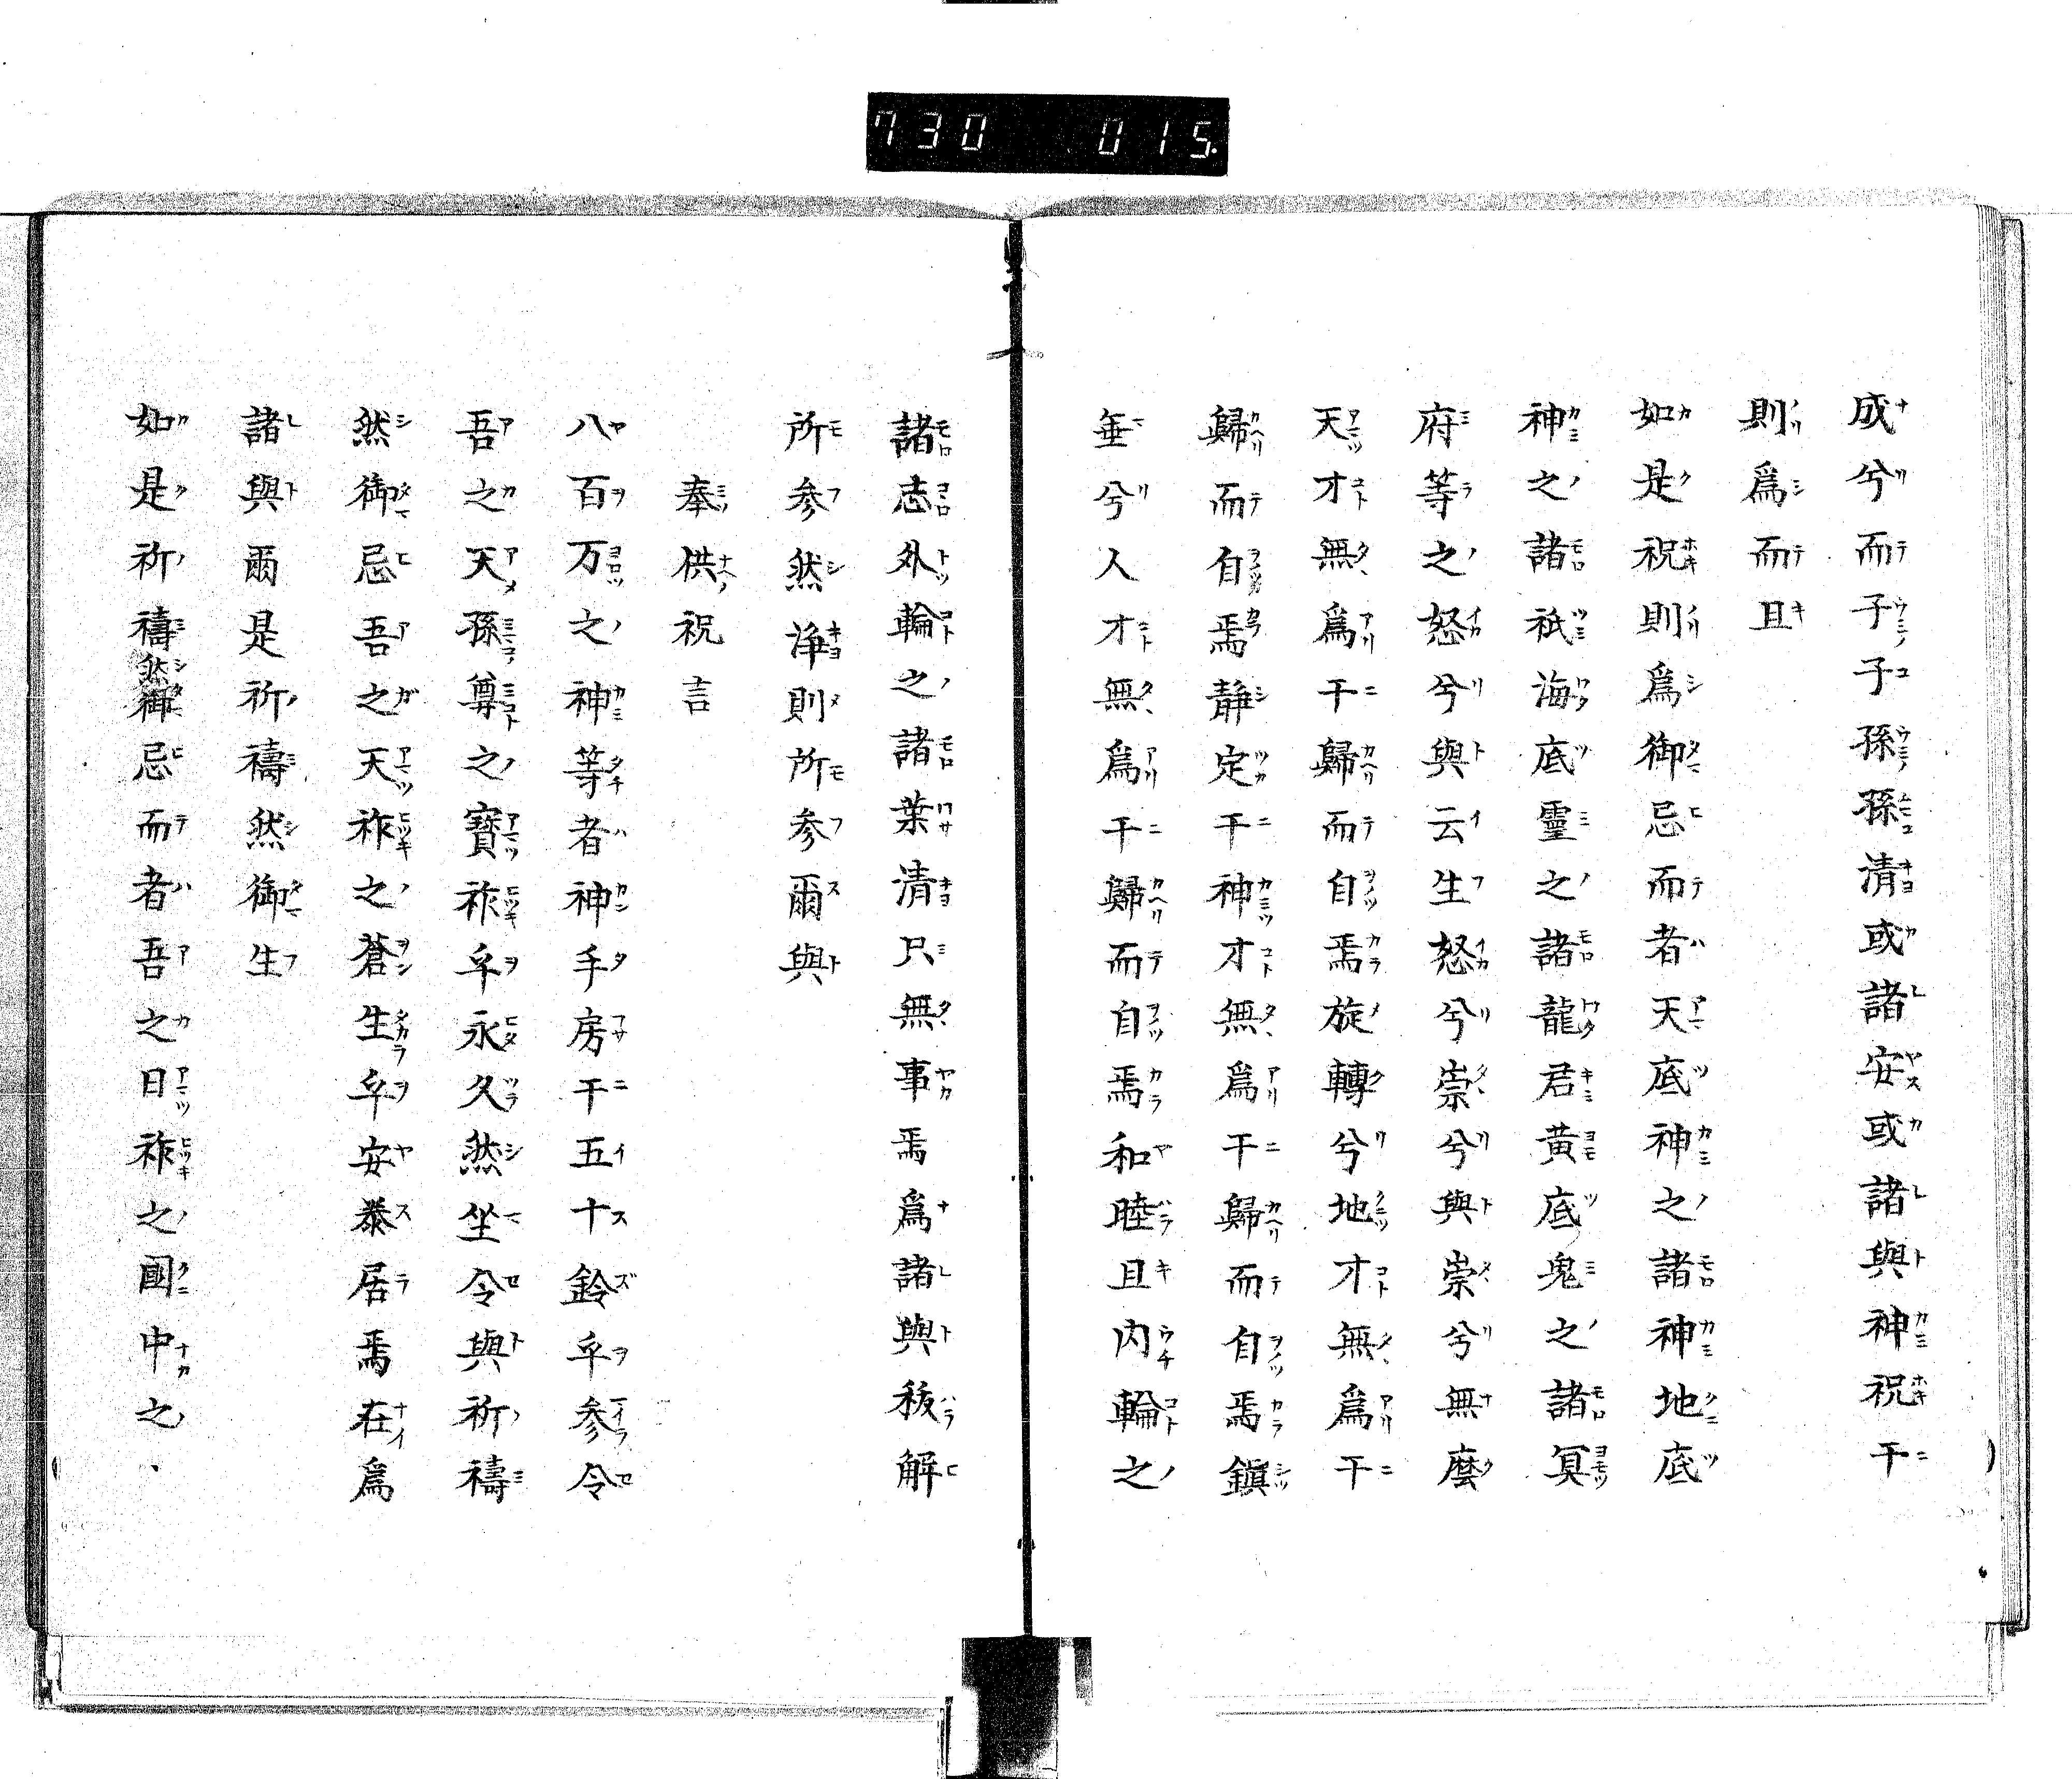 730 015
成兮而子子孫孫清或諸安或諸與神祝干
則爲而且
如是祝則爲御忌而者天底神之諸神地底
神之諸祇海底靈之諸龍君黃底鬼之諸冥
府等之怒兮與云生怒兮崇兮與崇兮無麼
天才無爲干歸而自焉旋轉兮地才無爲干
歸而自焉靜定干神才無爲干歸而自焉鎭
垂兮人才無爲干歸而自焉和睦且内輪之
諸志外輪之諸葉清尺無事焉爲諸與秡解
所参然淨則所参爾與
奉供祝言
八百万之神等者神手房干五十鈴乎参令
吾之天孫尊之寶祚乎永久然坐令與祈禱
然御忌吾之天祚之蒼生乎安泰居焉在爲
諸與爾是祈禱然御生
如是祈禱然御忌而者吾之日祚之國中之